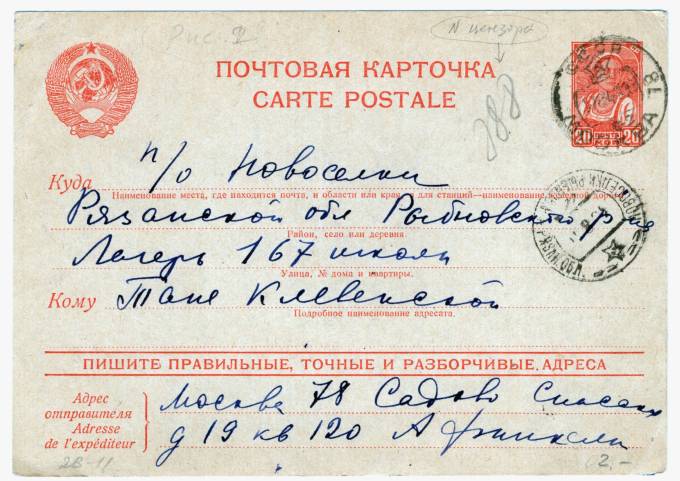 Рис. 2
N цензора
288
ПОЧТОВАЯ КАРТОЧКА
CARTE POSTALE
СССР
МОСКВА 78
ПОЧТА
20 КОП 20
Куда п/о Новоселки
Наименование места, где находится почта, и области или края, а для станций—наименование железной дороги
Рязанской обл Рыбновского р-на
Район, село или деревня
Лагерь 167 школы
Улица, № дома и квартиры.
Кому Тане Клевенской
Подробное наименование адресата.
ПИШИТЕ ПРАВИЛЬНЫЕ, ТОЧНЫЕ И РАЗБОРЧИВЫЕ АДРЕСА
Адрес
отправителя
Adresse
de l'expéditeur
Москва 78 Садово Спасская
д 19 кв 120 А
28-11
2,-